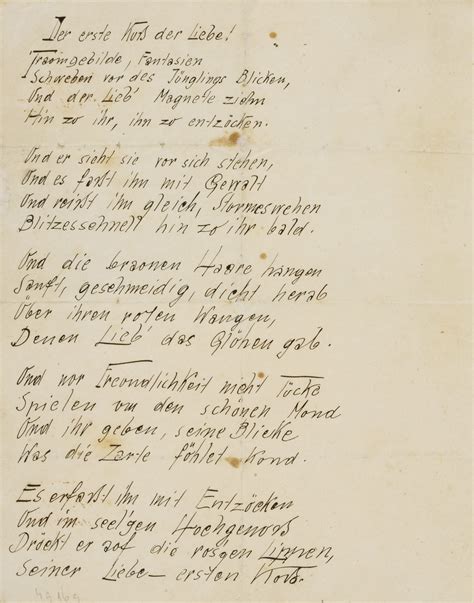 Der erste Kuß der Liebe!
Traumgebilde, Fantasien
Schweben vor des Jünglings Blicken,
Und der Lieb' Magnete ziehn
Hin zu ihr, ihn zu entzücken.
Und er sieht sie vor sich stehen,
Und es faßt ihn mit Gewalt
Und reißt ihn gleich, Sturmeswehen
Blitzesschnell hin zu ihr bald.
Und die braunen Haare hangen
Sanft, geschmeidig, dicht herab
Über ihren roten Wangen,
Denen Lieb' das Glühen gab.
Und nur Freundlichkeit nicht Tücke
Spielen um den schönen Mund
Und ihr geben, seine Blicke
Was die Zarte fühlet kund.
Es erfaßt ihn mit Entzücken
Und im seel'gen Hochgenuß
Drückt er auf die ros'gen Lippen,
Seiner Liebe – ersten Kuß.